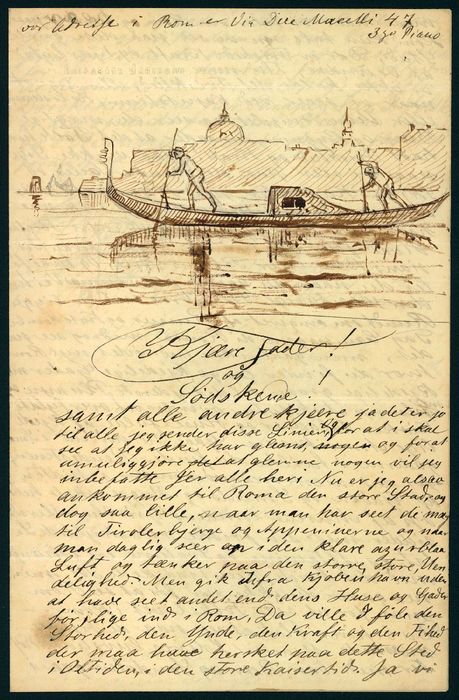 vor Adresse i Rom er Via Due Macelli 47
3zo Piano
Kjære Fader!
og
Sødskene!
samt alle andre kjære ja det er jo
til alle jeg sender disse Linier, for at i skal
see at jeg ikke har glemt, nogen og for at
umuliggjøre det at glemme nogen vil jeg
indbefatte Jer alle heri Nu er jeg altsaa
ankommet til Roma den store Stad, og
dog saa lille, naar man har seet de
til Tirolerbjerge og Appeninerne og naar
man daglig seer op i den klare azurblaa
Luft og tænker paa den større, store, Uen
delighed. Men gik I fra Kjøbenhavn uden
at have seet andet end dens Huse og Gader
for lige ind i Rom, Da ville I føle den
Storhed, den Ynde, den Kraft og den
der maa have hersket paa dette Sted
i Oltiden, i den store Kaisertid. Ja vi